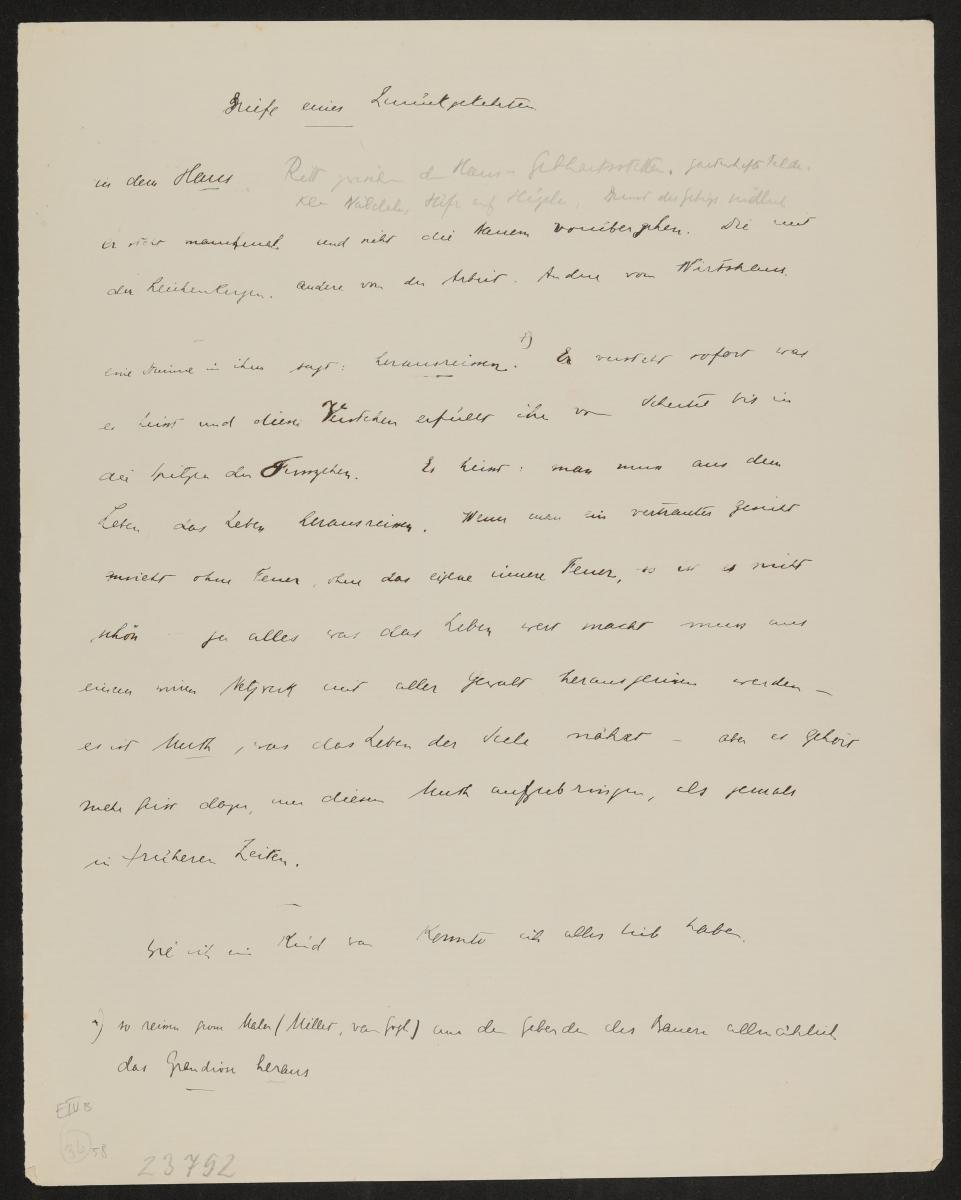 Briefe eines Zurückgekehrten
in dem Haus. Ritt zwischen dem Haus u Gebhartsstetten.
kleine Wäldchen, Höfe auf Hügeln, Dunst des Gebirgs
er sieht manchmal und sieht die Bauern vorübergehen. Die mit
den Leichenkerzen. andere von der Arbeit. Andere vom Wirtshaus.
eine Stimme in ihm sagt: herausreissen. *) Er versteht sofort was
es heisst und dieses Verstehen erfüllt ihn vom Scheitel bis in
die Spitzen der Fusszehen. Es heisst: man muss aus dem
Leben das Leben herausreissen. Wenn man ein vertrautes Gesicht
ansieht ohne Feuer, ohne das eigene innere Feuer, so ist es nicht
schön – ja alles was das Leben wert macht muss aus
einem wirren Netzwerk mit aller Gewalt herausgerissen werden –
es ist Muth, was das Leben der Seele nährt – aber es gehört
mehr Geist dazu, um diesen Muth aufzubringen, als jemals
in früheren Zeiten.
Wie ich ein Kind war konnte ich alles lieb haben.
*) so reissen grosse Maler (Millet, van Gogh) aus den Geberden des Bauern allmählich
das Grandiose heraus
E IV B
36 58
23752